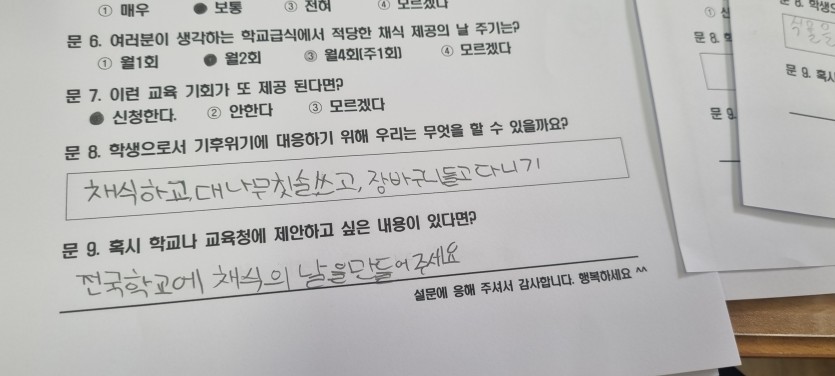 ① 매우 ● 보통 ③ 전혀 ④ 모르겠다
문 6. 여러분이 생각하는 학교급식에서 적당한 채식 제공의 날 주기는?
① 월1회 ● 월2회 ③ 월4회(주1회) ④ 모르겠다
문 7. 이런 교육 기회가 또 제공 된다면?
● 신청한다. ② 안한다 ③ 모르겠다
문 8. 학생으로서 기후위기에 대응하기 위해 우리는 무엇을 할 수 있을까요?
채식하고, 대나무칫솔쓰고, 장바구니들고다니기
문 9. 혹시 학교나 교육청에 제안하고 싶은 내용이 있다면?
전국학교에 채식의 날을만들어주세요
설문에 응해 주셔서 감사합니다. 행복하세요 ^^
①
문 8.
문 9.
학생으
문 9. 혹시